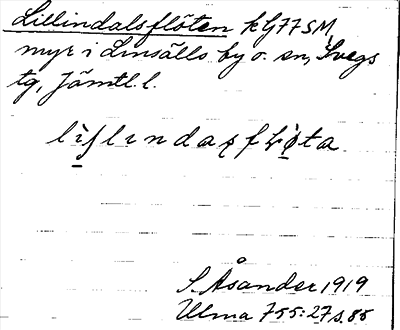 Lillindalsflöten kG77SM,
myr i Linsälls by o. sn, Svegs
tg, Jämtl. l.
S. Åsander 1919
Ulma 755:27 s. 85